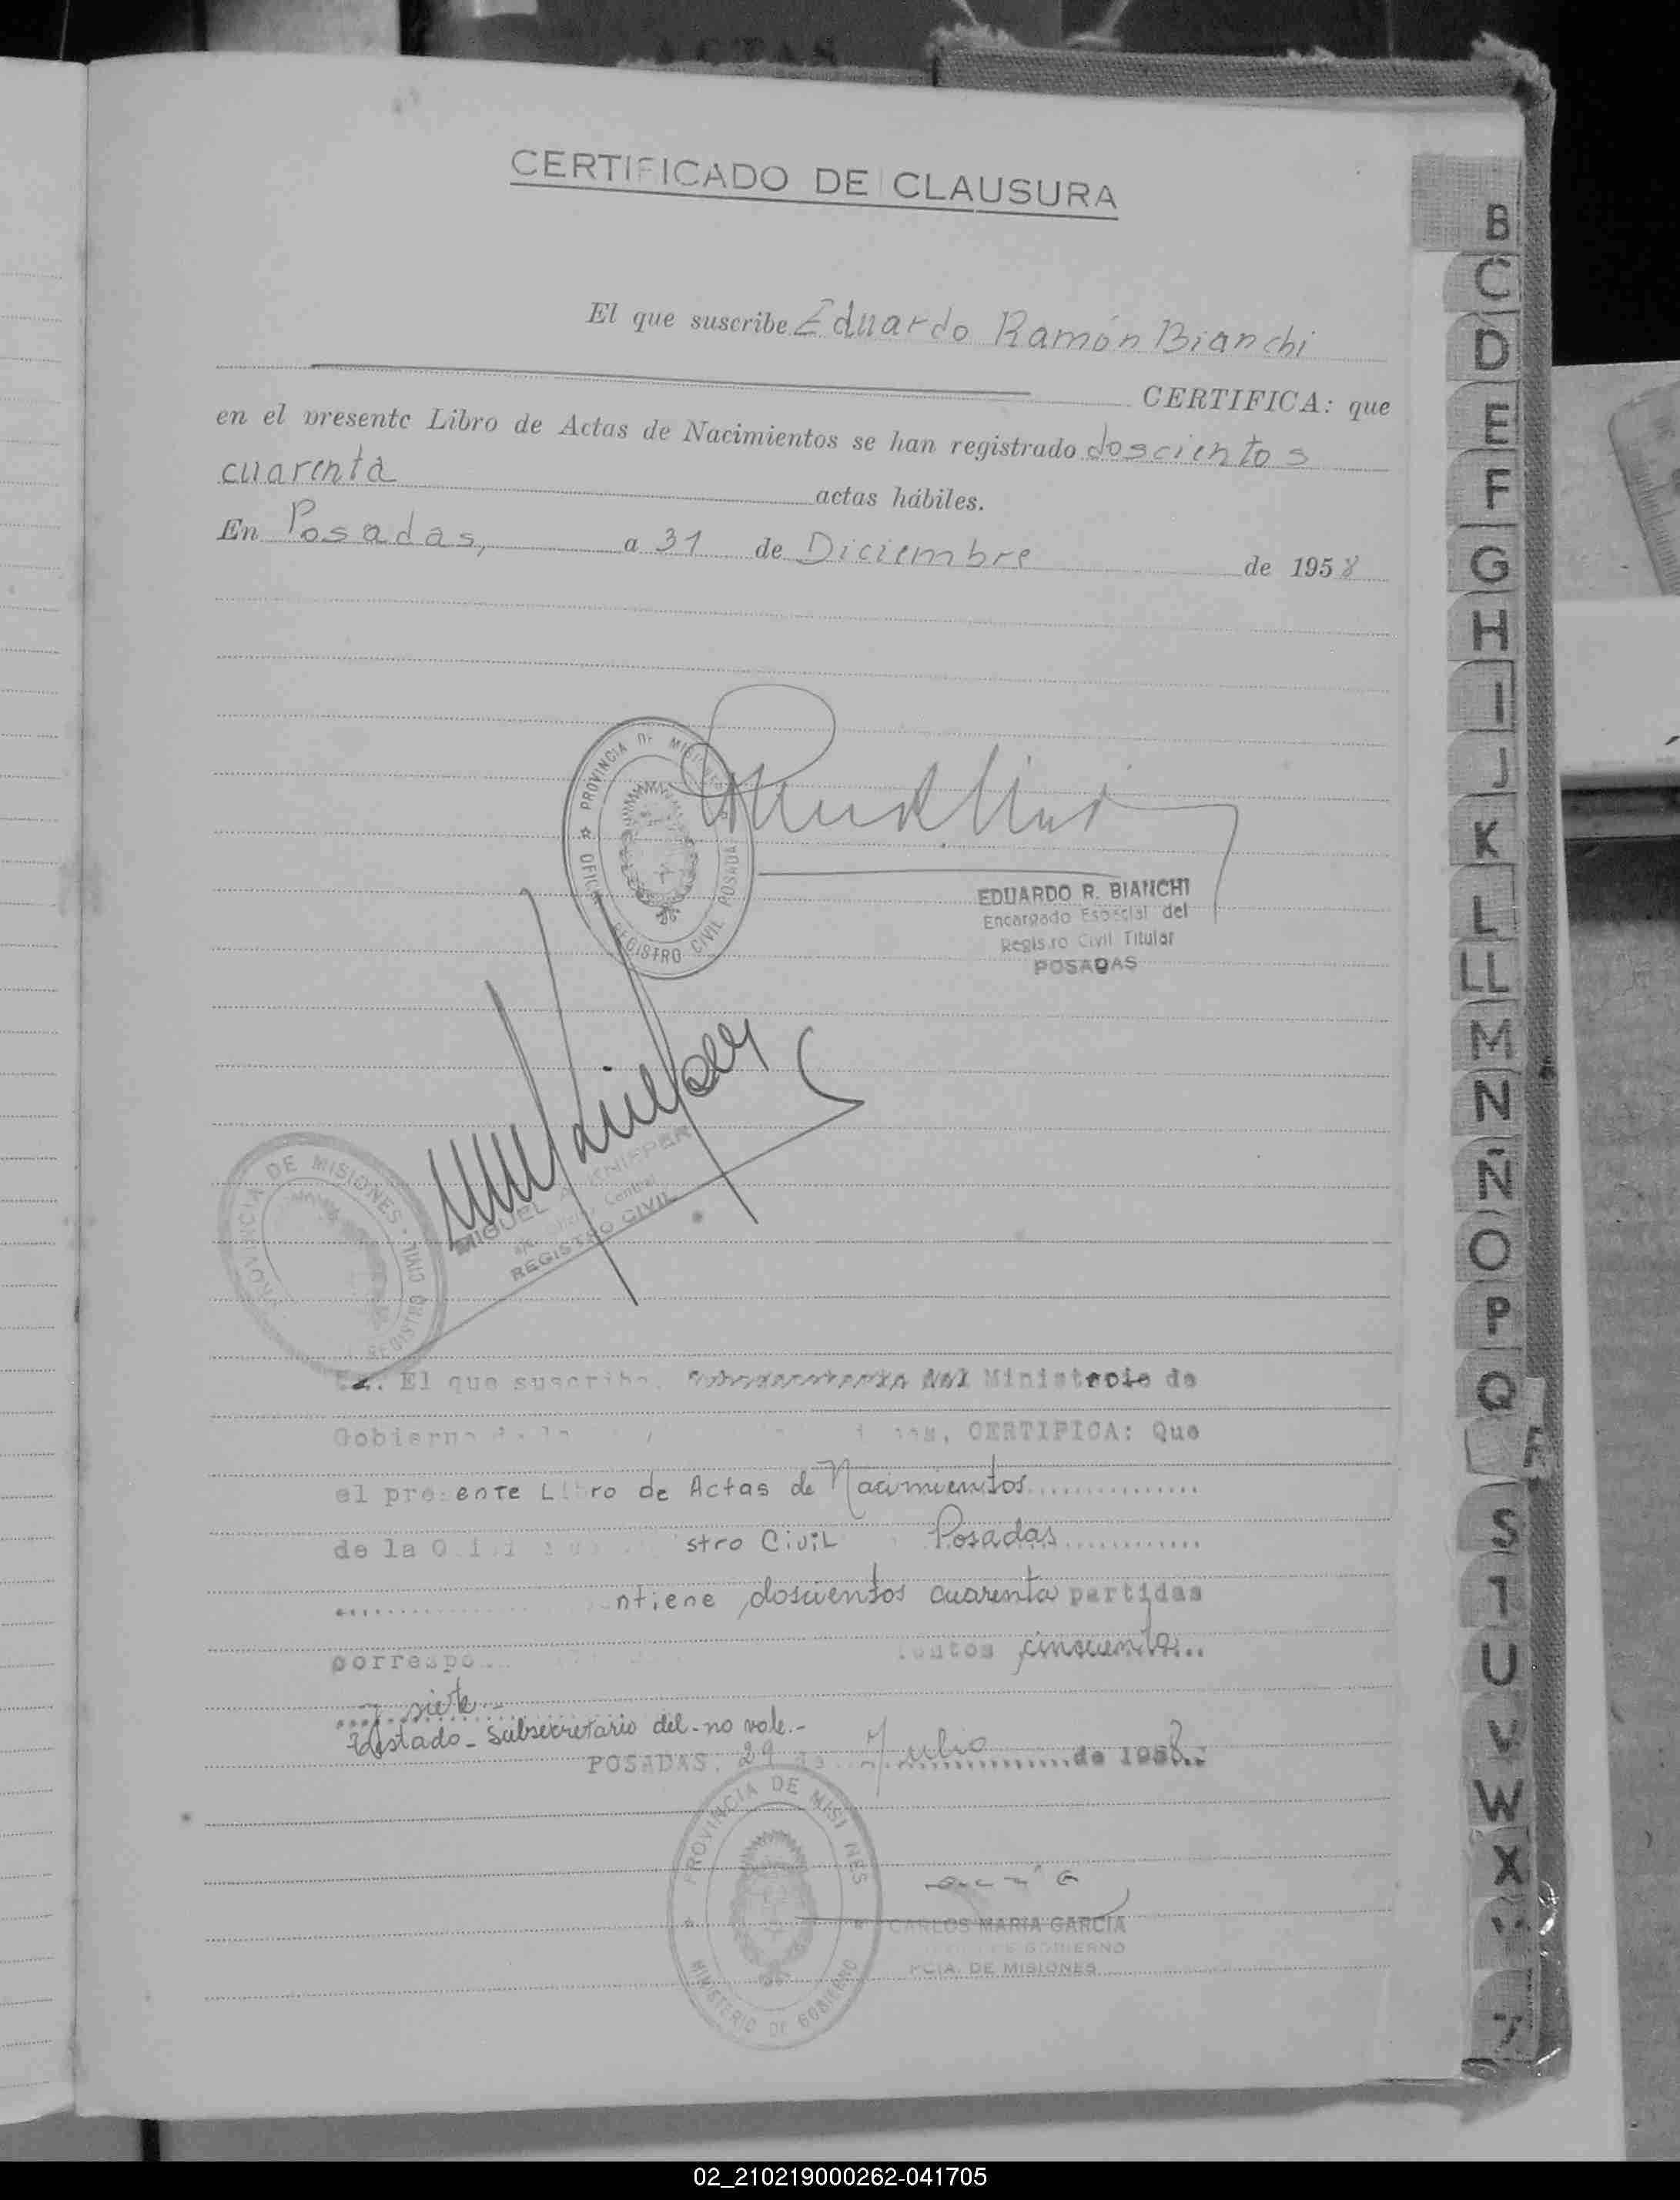 ACTAS
CERTIFICADO DE CLAUSURA
El que suscribe Eduardo Ramón Bianchi
CERTIFICA: que
en el presente Libro de Actas de Nacimientos se han registrado doscientos
cuarenta actas hábiles.
En Posadas, a 31 de Diciembre de 1958
PROVINCIA DE MISIONES
OFICINA REGISTRO CIVIL POSADAS
EDUARDO R. BIANCHI
Encargado Especial del
Registro Civil Titular
POSADAS
PROVINCIA DE MISIONES - REGISTRO CIVIL
MIGUEL A. KNIPPER
Central
REGISTRO CIVIL
El que suscribe, del Ministerio de
Gobierno CERTIFICA: Que
el presente Libro de Actas de Nacimientos
de la stro Civil Posadas
ntiene doscientos cuarenta partidas
correspo cincuenta
y siete.-
Testado - Subsecretario del - no vale.-
POSADAS, 29 de Julio de 1958
PROVINCIA DE MISIONES
MINISTERIO DE GOBIERNO
CARLOS MARIA GARCIA
GOBIERNO
PCIA. DE MISIONES
B
C
D
E
F
G
H
I
J
K
L
LL
M
N
Ñ
O
P
Q
R
S
T
U
V
W
X
02_210219000262-041705